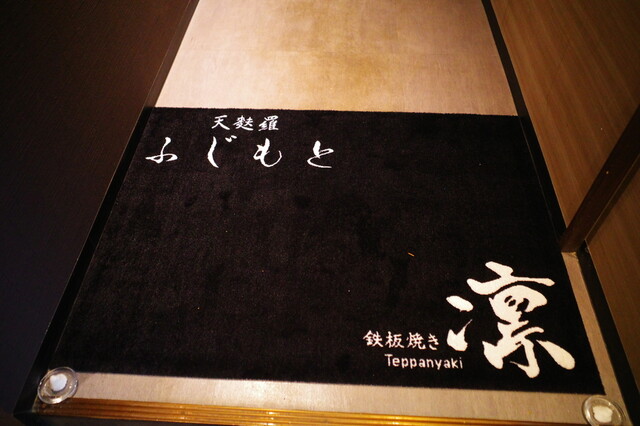 天麩羅
ふじもと
鉄板焼き 凛
Teppanyaki